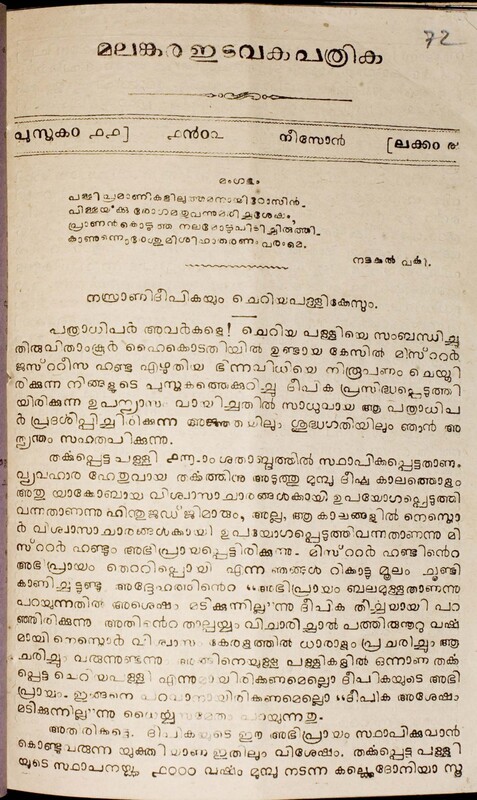 72
മലങ്കര ഇടവകപത്രിക
പുസ്തകം ൧൧] ൧൯൦൨ നീസോൻ [ലക്കം
മംഗളം
നടക്കൽ പക്കി.
നസ്രാണിദീപികയും ചെറിയപള്ളികേസും.
പത്രാധിപർ അവർകളെ! ചെറിയ പള്ളിയെ സംബന്ധിച്ചു
തിരുവിതാംകൂർ ഹൈകൊടതിയിൽ ഉണ്ടായ കേസിൽ മിസ്റ്റർ
ജസ്റ്റീസ ഹണ്ടു എഴുതിയ ഭിന്നവിധിയെ നിരൂപണം ചെയ്തി
രിക്കുന്ന നിങ്ങളുടെ പുസ്തകത്തെക്കുറിച്ചു ദീപിക പ്രസിദ്ധപ്പെടുത്തി
യിരിക്കുന്ന ഉപന്യാസം വായിച്ചതിൽ സാധുവായ ആ പത്രാധിപ
ർ പ്രദർശിപ്പിച്ചിരിക്കുന്ന അജ്ഞതയിലും ശുദ്ധഗതിയിലും ഞാൻ അ
ത്യന്തം സഹതപിക്കുന്നു.
തൎക്കപ്പെട്ട പള്ളി ൧൬-ാം ശതാബ്ദത്തിൽ സ്ഥാപികപ്പെട്ടതാണ.
വ്യവഹാര ഹേതുവായ തൎക്കത്തിനു അടുത്തു മുമ്പു ദീൎഘ കാലത്തൊളം
അതു യാകോബായ വിശ്വാസാചാരങ്ങൾക്കായി ഉപയോഗപ്പെടുത്തി
വന്നതാണന്നു ഹിന്തുജഡ്ജിമാരും, അല്ല, ആ കാലങ്ങളിൽ നെസ്തൊ
ർ വിശ്വാസാചാരങ്ങൾക്കായി ഉപയോഗപ്പെടുത്തിവന്നതാണന്നു മി
സ്റ്റർ ഹണ്ടും അഭിപ്രായപ്പെട്ടിരിക്കുന്നു. മിസ്റ്റർ ഹണ്ടിൻറ
അഭിപ്രായം തെറ്റിപ്പൊയി എന്നു ഞങ്ങൾ റിക്കാട്ടു മൂലം ചൂണ്ടി
കാണിച്ചിട്ടുണ്ടു. അദ്ദേഹത്തിൻറ "അഭിപ്രായം ബലമുള്ളതാണന്നു
പറയുന്നതിൽ അശെഷം മടിക്കുന്നില്ല"ന്നു ദീപിക തീൎച്ചയായി പറ
ഞ്ഞിരിക്കുന്നു. അതിൻറ താല്പൎയ്യം വിചാരിച്ചാൽ പത്തിരുന്നൂറു വൎഷ
മായി നെസ്തൊർ വിശ്വാസം കേരളത്തിൽ ധാരാളം പ്രചരിച്ചും ആ
ചരിച്ചും വരുന്നുണ്ടന്നും അങ്ങിനെയുള്ള പള്ളികളിൽ ഒന്നാണ തൎക്ക
പ്പെട്ട ചെറിയപള്ളി എന്നുമായിരിക്കണമെല്ലൊ ദീപികയുടെ അഭി
പ്രായം. ഇങ്ങനെ പറവാനായിരിക്കണമെല്ലൊ "ദീപിക അശേഷം
മടിക്കുന്നില്ല"ന്നു ധൈൎയ്യസമേതം പറയുന്നതു.
അതിരിക്കട്ടെ. ദീപികയുടെ ഈ അഭിപ്രായം സ്ഥാപിക്കുവാൻ
കൊണ്ടുവരുന്ന യുക്തിയാണ ഇതിലും വിശേഷം. തൎക്കപ്പെട്ട പള്ളി
യുടെ സ്ഥാപനയ്ക്കു ൧൦൦൦ വൎഷം മുമ്പു നടന്ന കല്ക്കെദോനിയാ സൂ